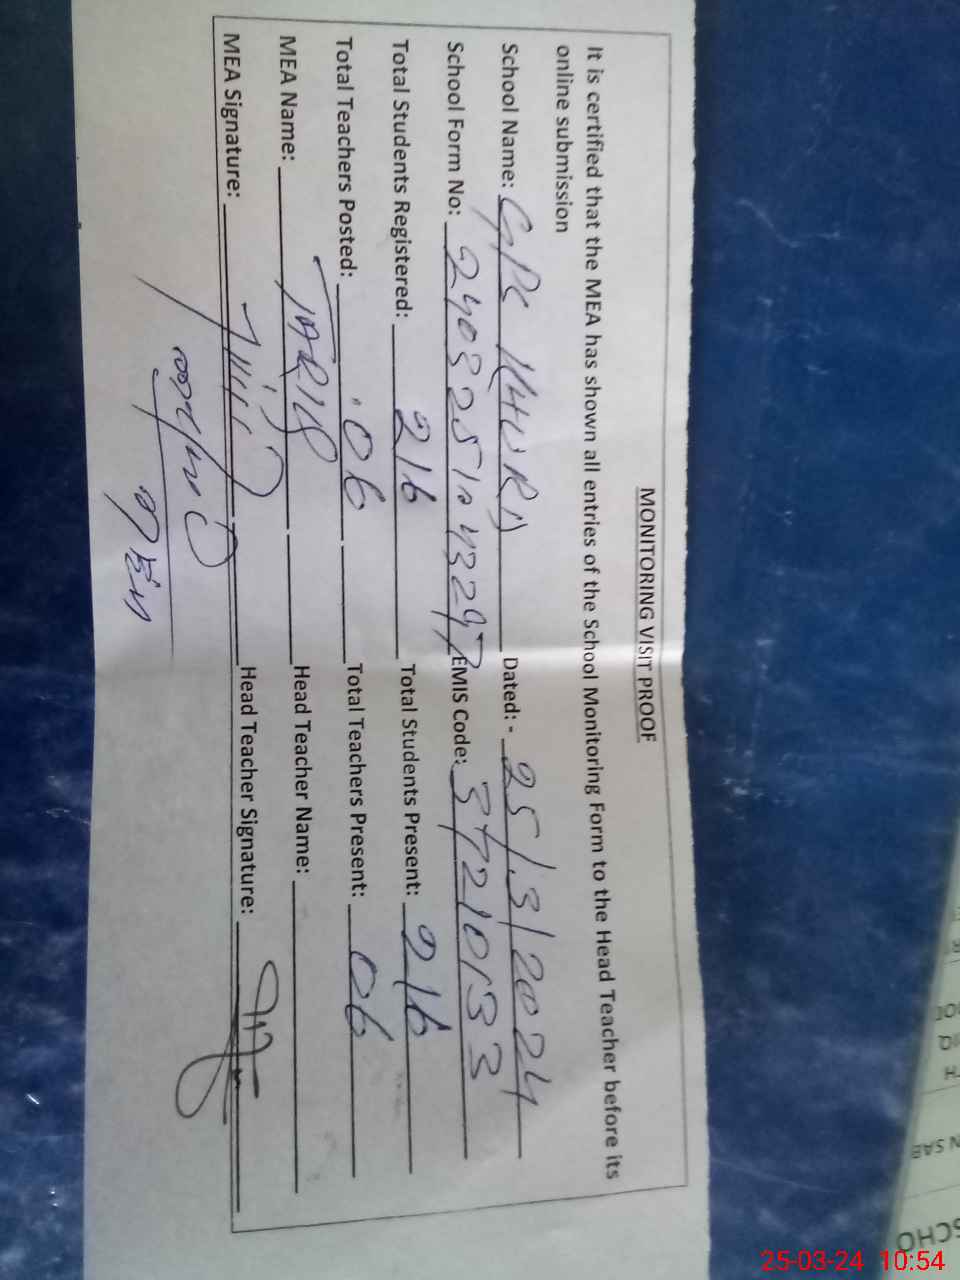 MONITORING VISIT PROOF
It is certified that the MEA has shown all entries of the School Monitoring Form to the Head Teacher before its
online submission
School Name: GPS Dated: - 25/3/2024
School Form No: EMIS Code: 37210133
Total Students Registered: 216 Total Students Present: 216
Total Teachers Posted: 06 Total Teachers Present: 06
MEA Name: TARIQ Head Teacher Name:
MEA Signature: Head Teacher Signature:
SCHO
N SAB
25-03-24 10:54